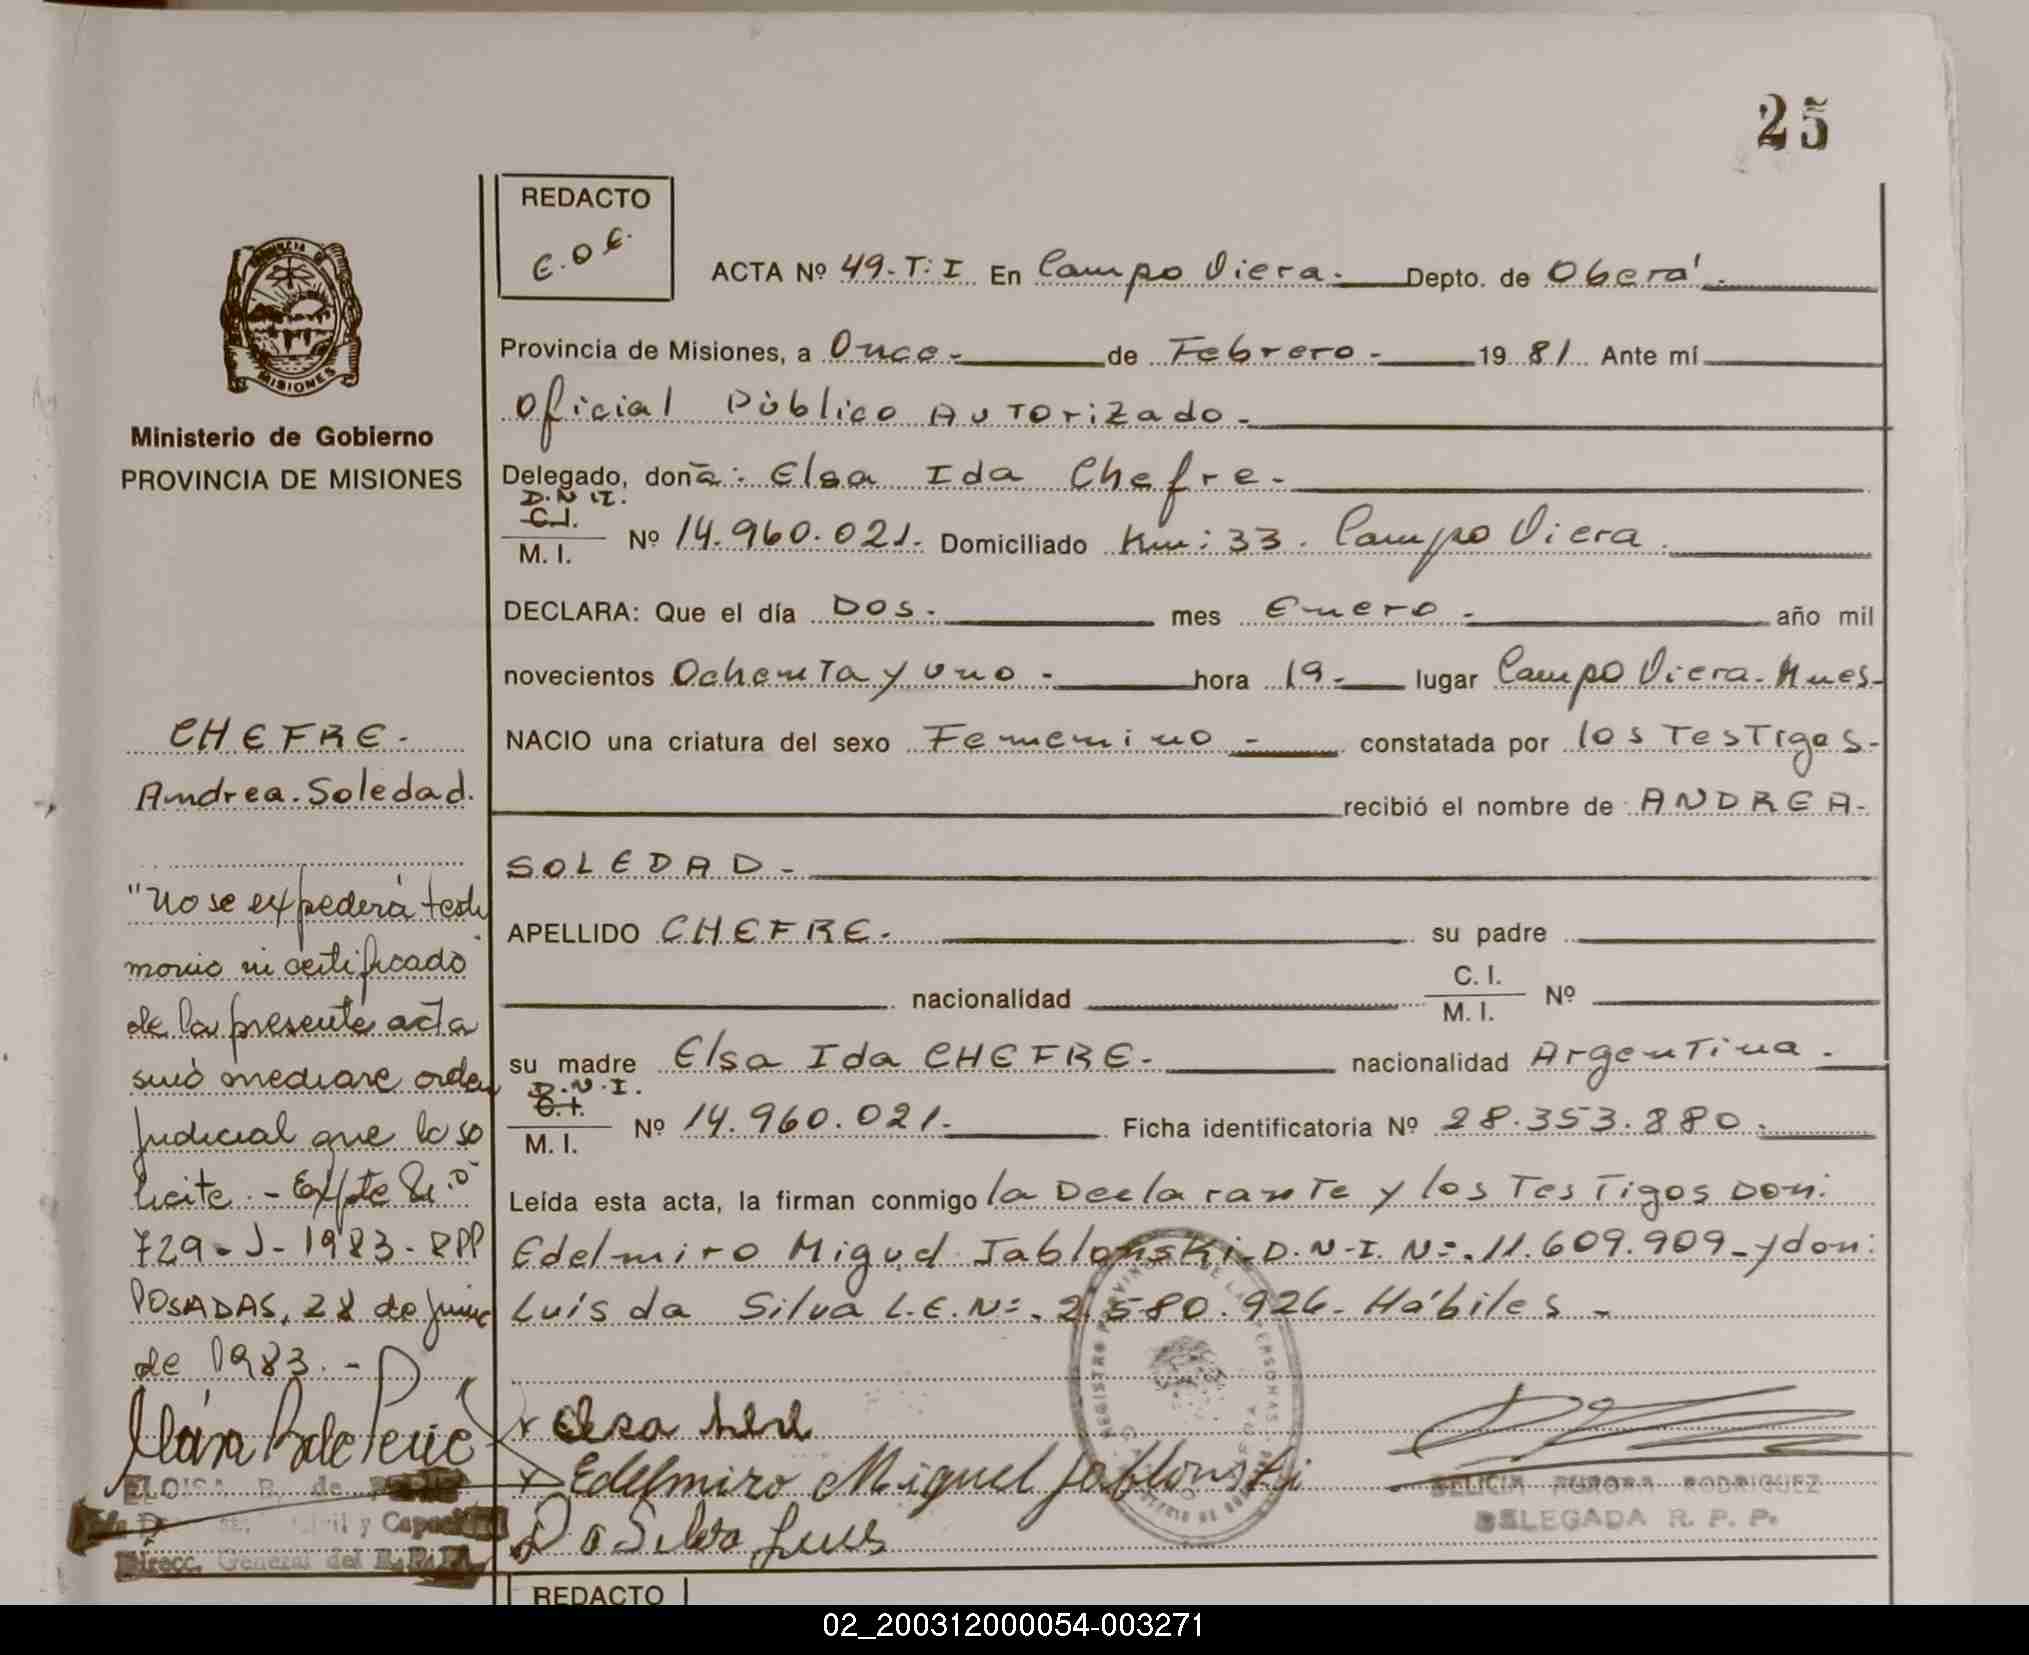 25
REDACTO
E.O.C.
ACTA Nº 49-T:I En Campo Viera.- Depto. de Oberá.-
Provincia de Misiones, a Once.- de Febrero.- 1981 Ante mí
Oficial Público Autorizado.-
Delegado, doña: Elsa Ida Chefre.-
D.N.I.
C.I.
M. I. Nº 14.960.021. Domiciliado Km: 33. Campo Viera.
DECLARA: Que el día Dos.- mes Enero.- año mil
novecientos Ochenta y uno.- hora 19.- lugar Campo Viera. Mnes-
NACIO una criatura del sexo Femenino.- constatada por los Testigos-
recibió el nombre de ANDREA-
SOLEDAD.-
APELLIDO CHEFRE.- su padre
nacionalidad C. I. M. I. Nº
su madre Elsa Ida CHEFRE.- nacionalidad Argentina.-
D.N.I.
C.I.
M. I. Nº 14.960.021.- Ficha identificatoria Nº 28.353.880.-
Leída esta acta, la firman conmigo la Declarante y los Testigos Don:
Edelmiro Miguel Jablonski-D.N.I. N=.11.609.909-y don:
Luís da Silva L.E.N=.2.580.926-Hábiles-
Edelmiro Miguel Jablonski
Da Silva Luis
DELICIA AURORA RODRIGUEZ
DELEGADA R. P. P.
REDACTO
PROVINCIA DE
MISIONES
Ministerio de Gobierno
PROVINCIA DE MISIONES
CHEFRE.-
Andrea.Soledad.
"No se expederá testi
monio ni certificado
de la presente acta
sinó mediare orden
judicial que lo so
licite.- Expte N.º
729-J-1983-RPP
POSADAS, 28 de junio
de 1983.-
ELOISA B. de
Civil y
Direcc. General del R.P.P.
02_200312000054-003271